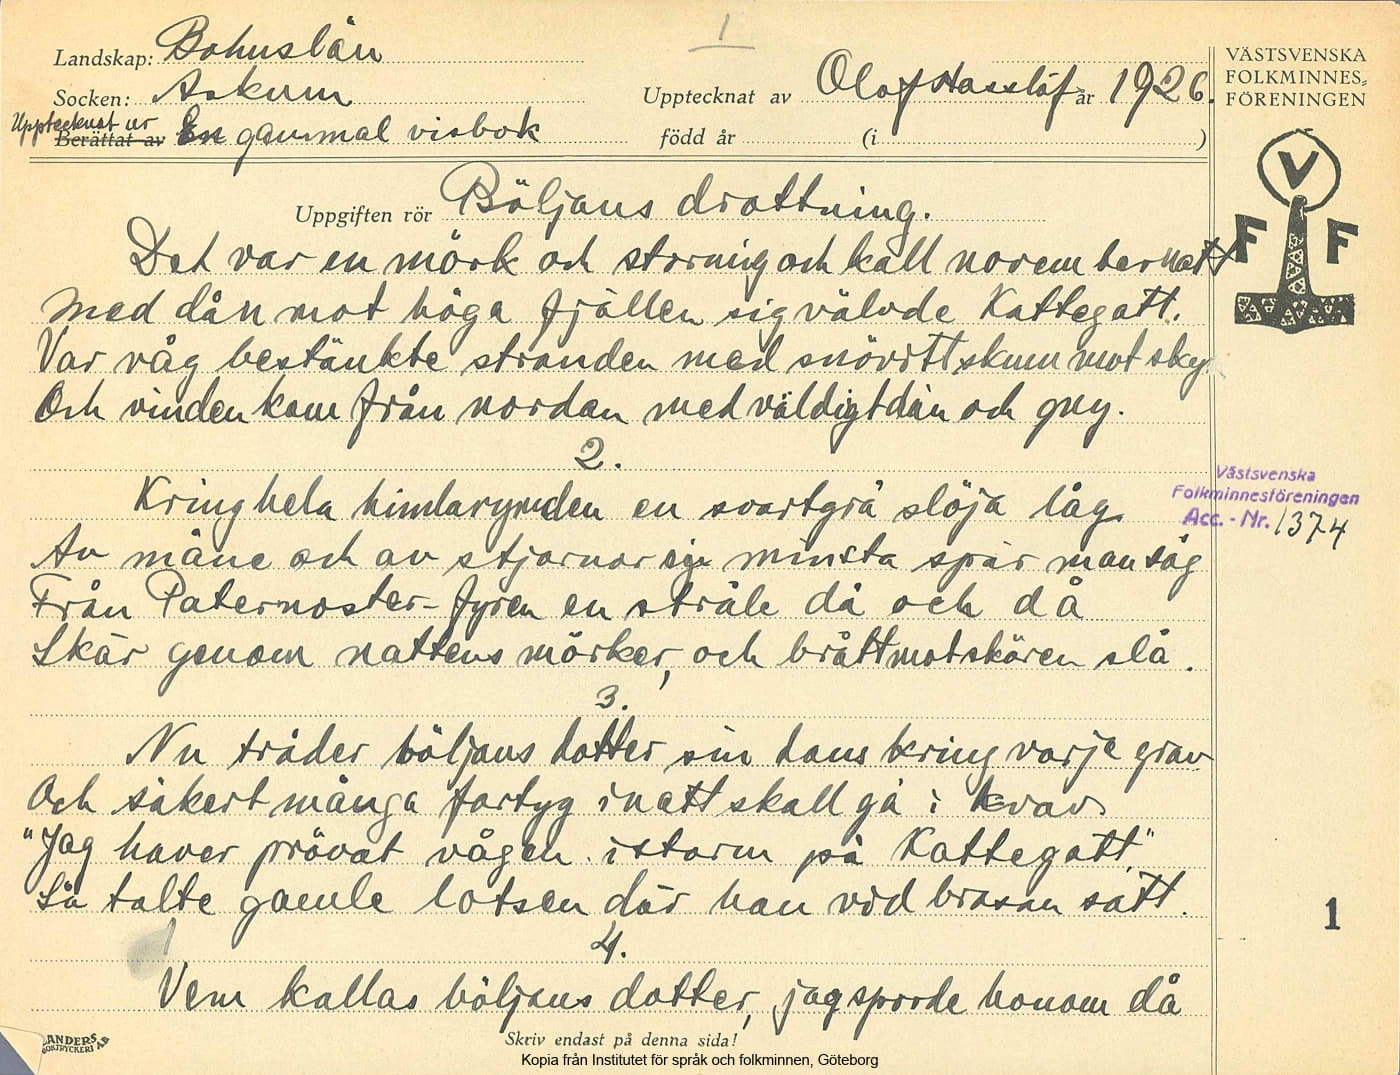 1
Landskap: Bohuslän
Socken: Askum
Upptecknat av Olof Hasslöf år 1926.
Upptecknat ur
Berättat av En gammal visbok
född år (i )
VÄSTSVENSKA
FOLKMINNES-
FÖRENINGEN
V
F F
Uppgiften rör Böljans drottning.
Det var en mörk och stormig och kall november natt
Med dån mot höga fjällen sig välvde Kattegatt.
Var våg bestänkte stranden med snövitt skum mot sky
Och vinden kom från nordan med väldigt dån och gny.
2.
Kring hela himlarymden en svartgrå slöja låg
Av måne och av stjärnor ej minsta spår man såg
Från Paternoster-fyren en stråle då och då
Skär genom nattens mörker, och brått mot skären slå.
3.
Nu tråder böljans dotter sin dans kring varje grav
Och säkert många fartyg i natt skall gå i kvav.
"Jag haver prövat vågen i storm på Kattegatt."
Så talte gamle lotsen där han vid brasan satt.
4.
Vem kallas böljans dotter, jag sporde honom då
Västsvenska
Folkminnesföreningen
Acc. - Nr. 1374
1
LANDERS
BOKTRYCKERI AB
Skriv endast på denna sida!
Kopia från Institutet för språk och folkminnen, Göteborg